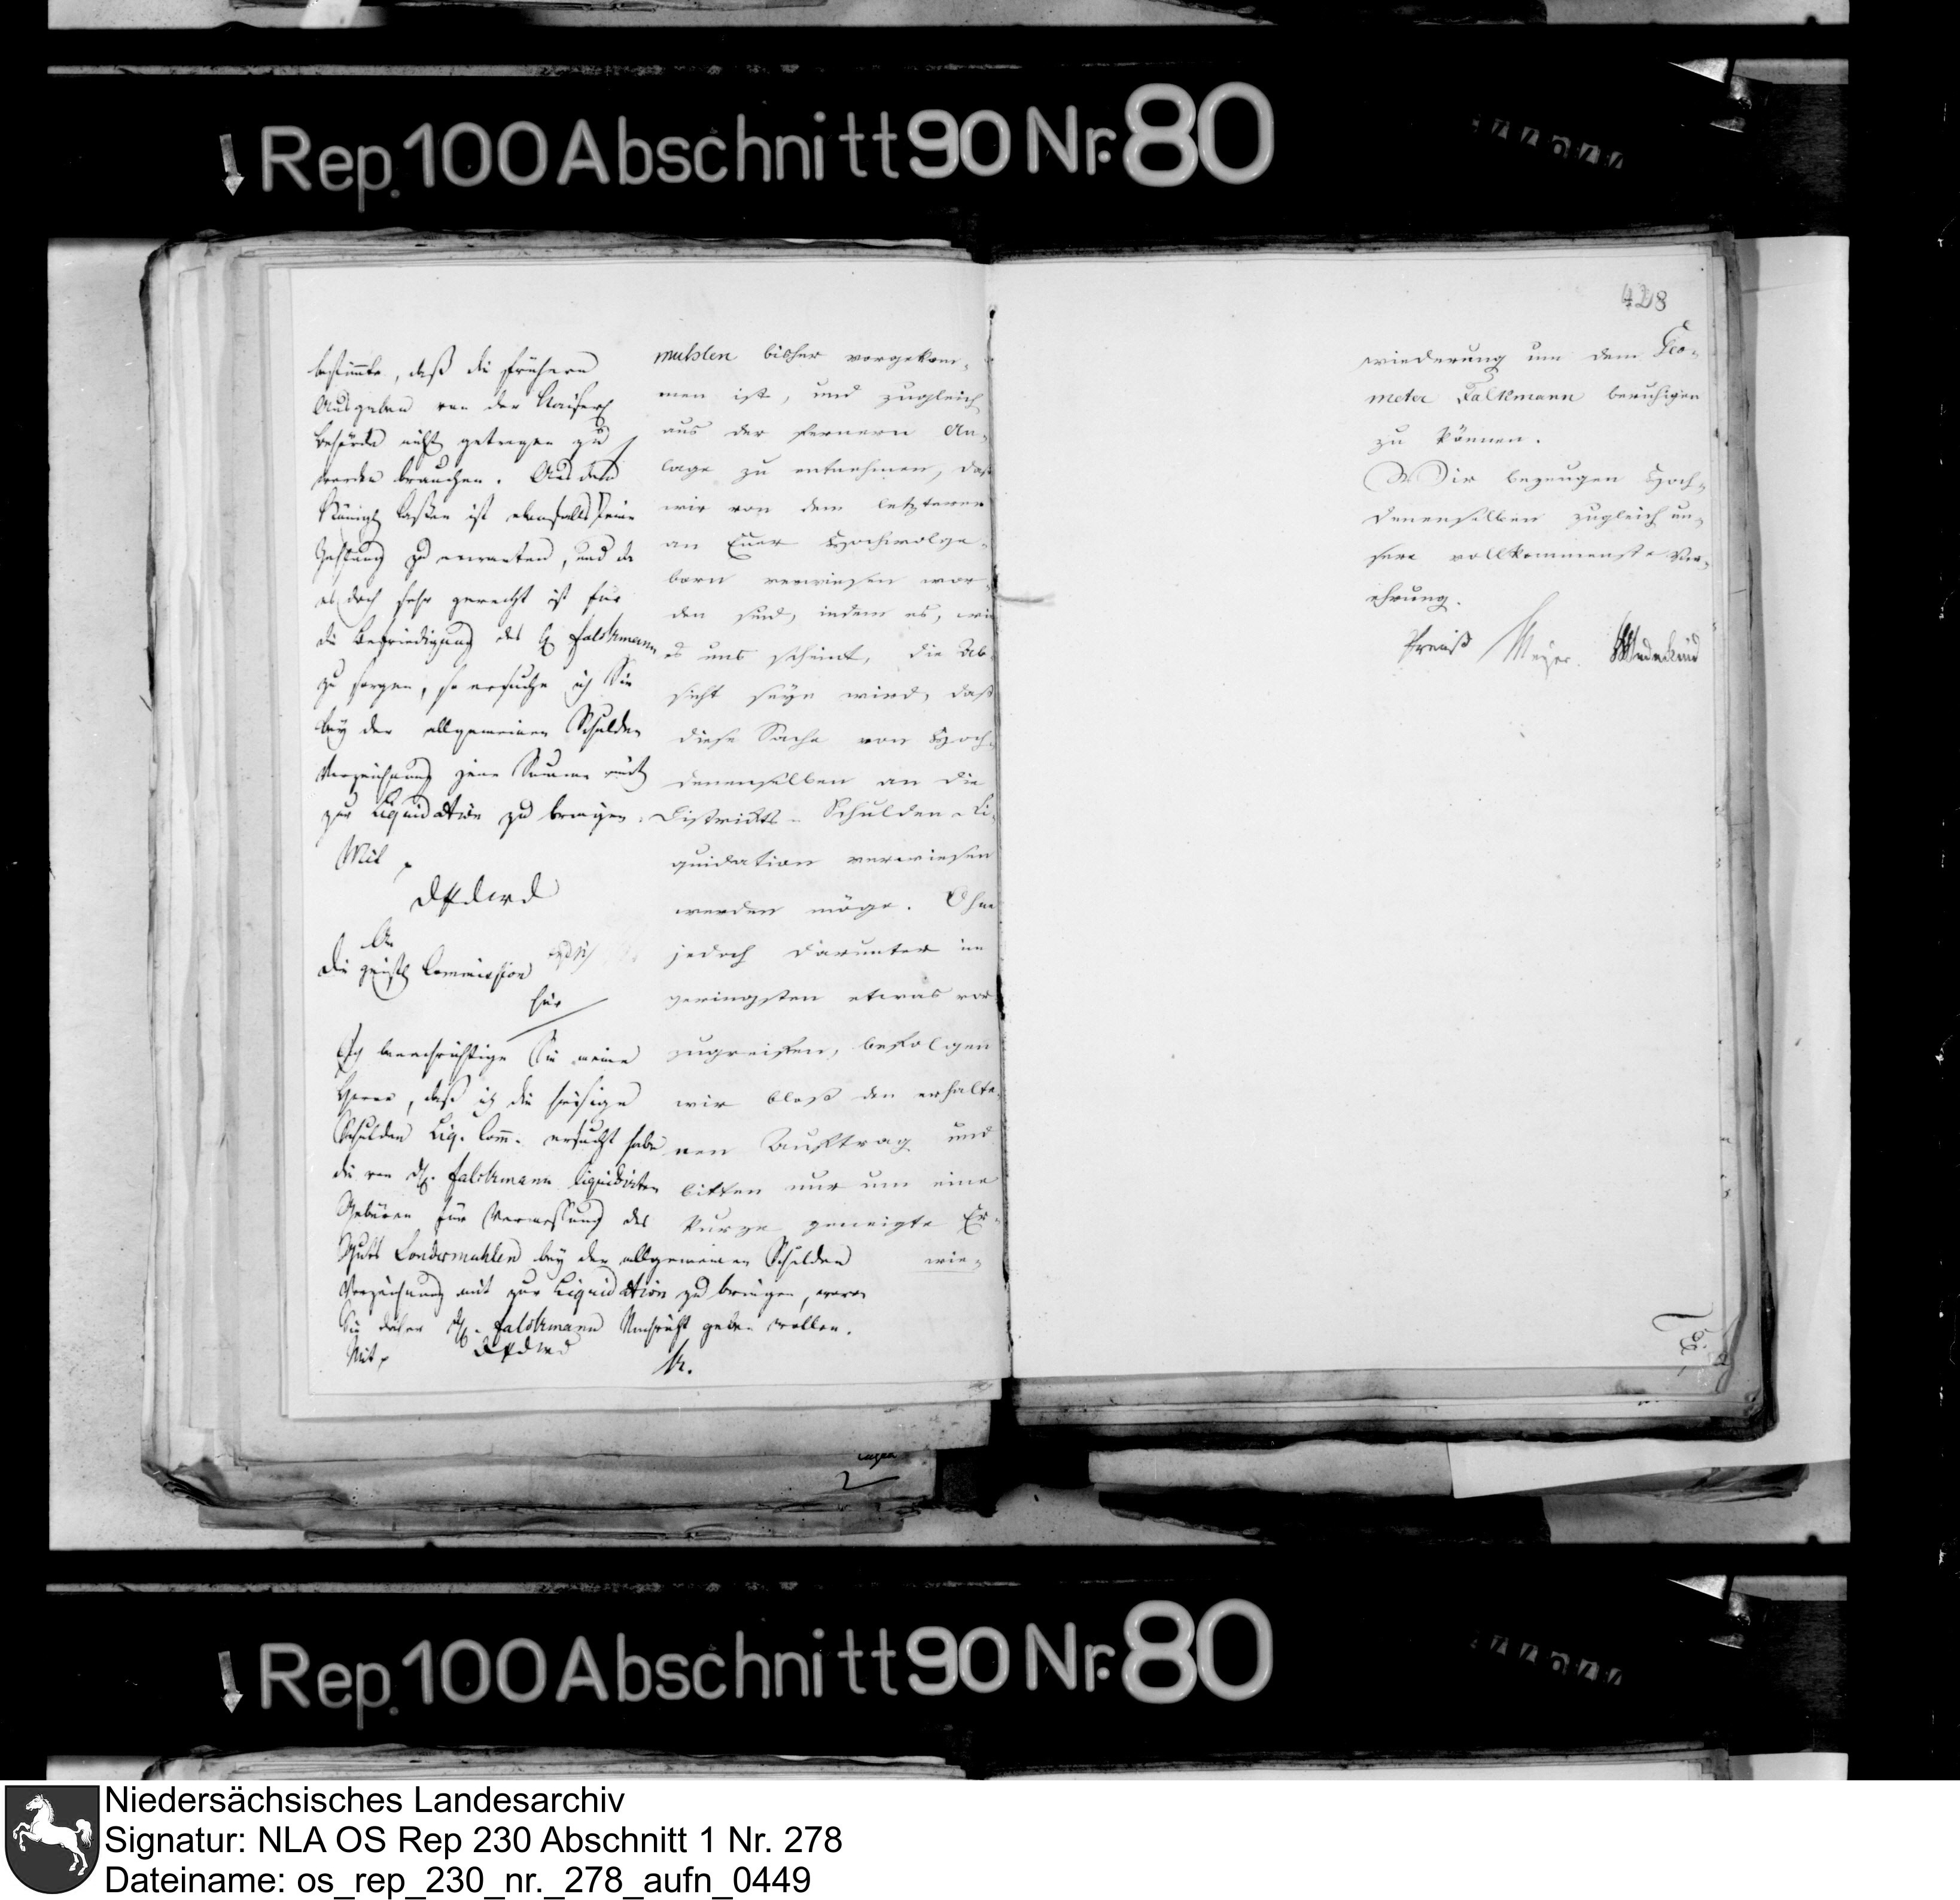 Rep. 100 Abschnitt 90 Nr. 80
bestimmte, daß die frühern
Ausgaben von der Kaiserl
Behörde nicht getragen zu
werden brauchen. Aus den
Königl Cassen ist ebenfalls keine
Zahlung zu erwarten, und da
es doch sehr gerecht ist für
die Befriedigung des Falckmann
zu sorgen, so ersuche ich Sie
bey der allgemeinen Schulden
Verzeichnung jene Summe mit
zur Liquidation zu bringen.
Mit
An
die Commission
Ich benachrichtige Sie meine
Herrn, daß ich die hiesige
Schulden Liq. Comm. ersucht habe
die von Falckmann liquidirten
Gebüren für Vermessung des
Guts Londermuhlen bey der allgemeinen Schulden
Verzeichnung mit zur Liquidation zu bringen, wovon
Sie daher Falckmann Nachricht geben wollen.
Mit
muhlen bisher vorgekom-
men ist, und zugleich
aus der fernern An-
lage zu entnehmen, daß
wir von dem letzteren
an Euer Hochwolge-
born verwiesen wor-
den sind, indem es, wie
es uns scheint, die Ab-
sicht seyn wird, daß
diese Sache von Hoch-
denenselben an die
Districts-Schulden-Li-
quidation verwiesen
werden möge. Ohne
jedoch darunter im
geringsten etwas vor
zugreifen, befolgen
wir bloß den erhalte-
nen Auftrag und
bitten nur um eine
kurze geneigte Er-
wie-
428
wiederung um dem Geo-
meter Falkmann beruhigen
zu können.
Wir bezeugen Hoch-
denenselben zugleich un-
sere vollkommenste Ver-
ehrung.
Preuß Meyer. Wedekind
Rep. 100 Abschnitt 90 Nr. 80
Niedersächsisches Landesarchiv
Signatur: NLA OS Rep 230 Abschnitt 1 Nr. 278
Dateiname: os_rep_230_nr._278_aufn_0449